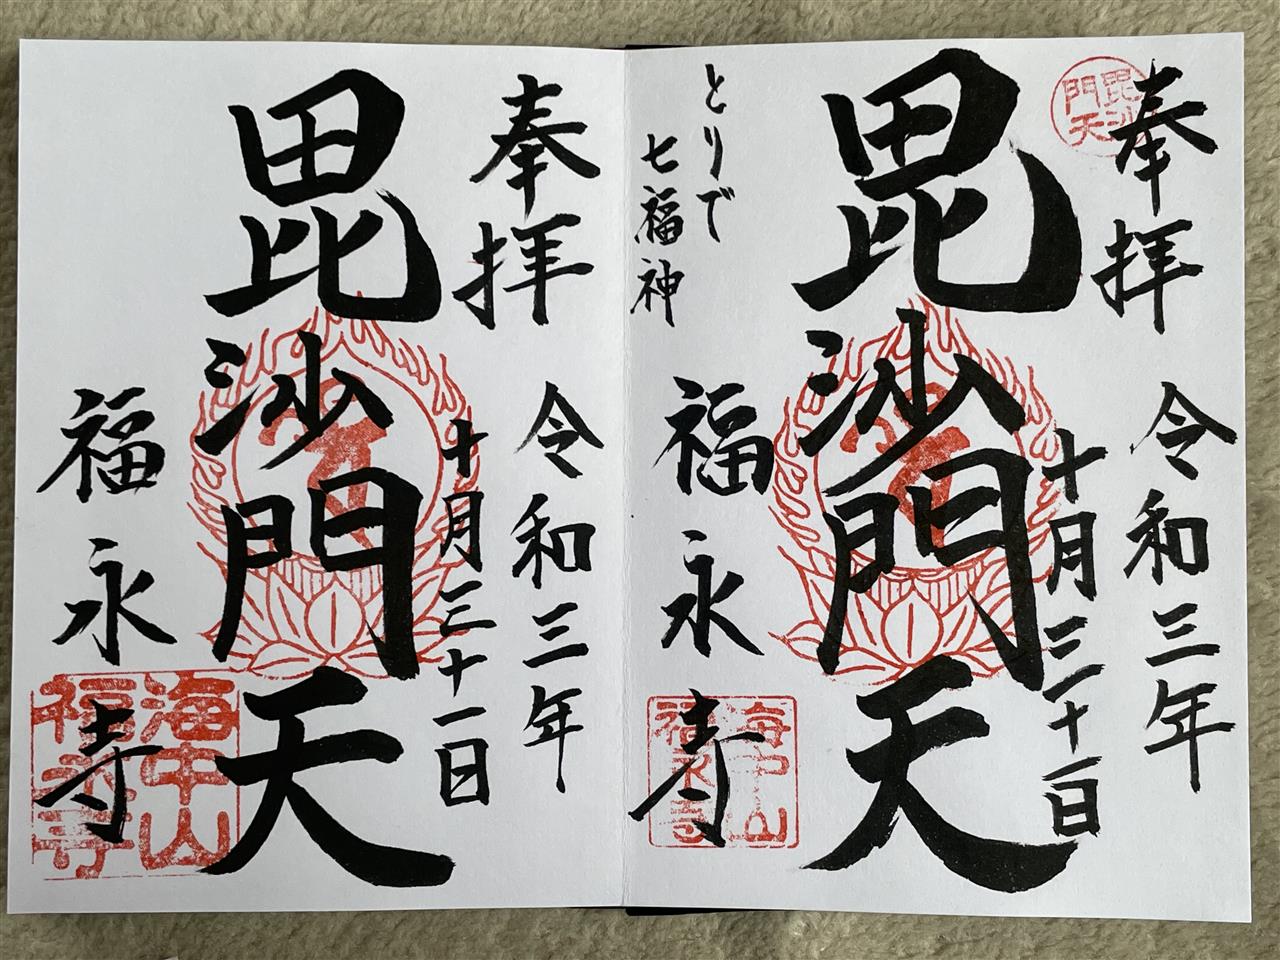 奉拝
毘沙門天
令和三年
十月三十一日
毘沙門天
とりで
七福神
福永寺
海中山
福永寺
奉拝
令和三年
十月三十一日
毘沙門天
福永寺
海中山
福永寺